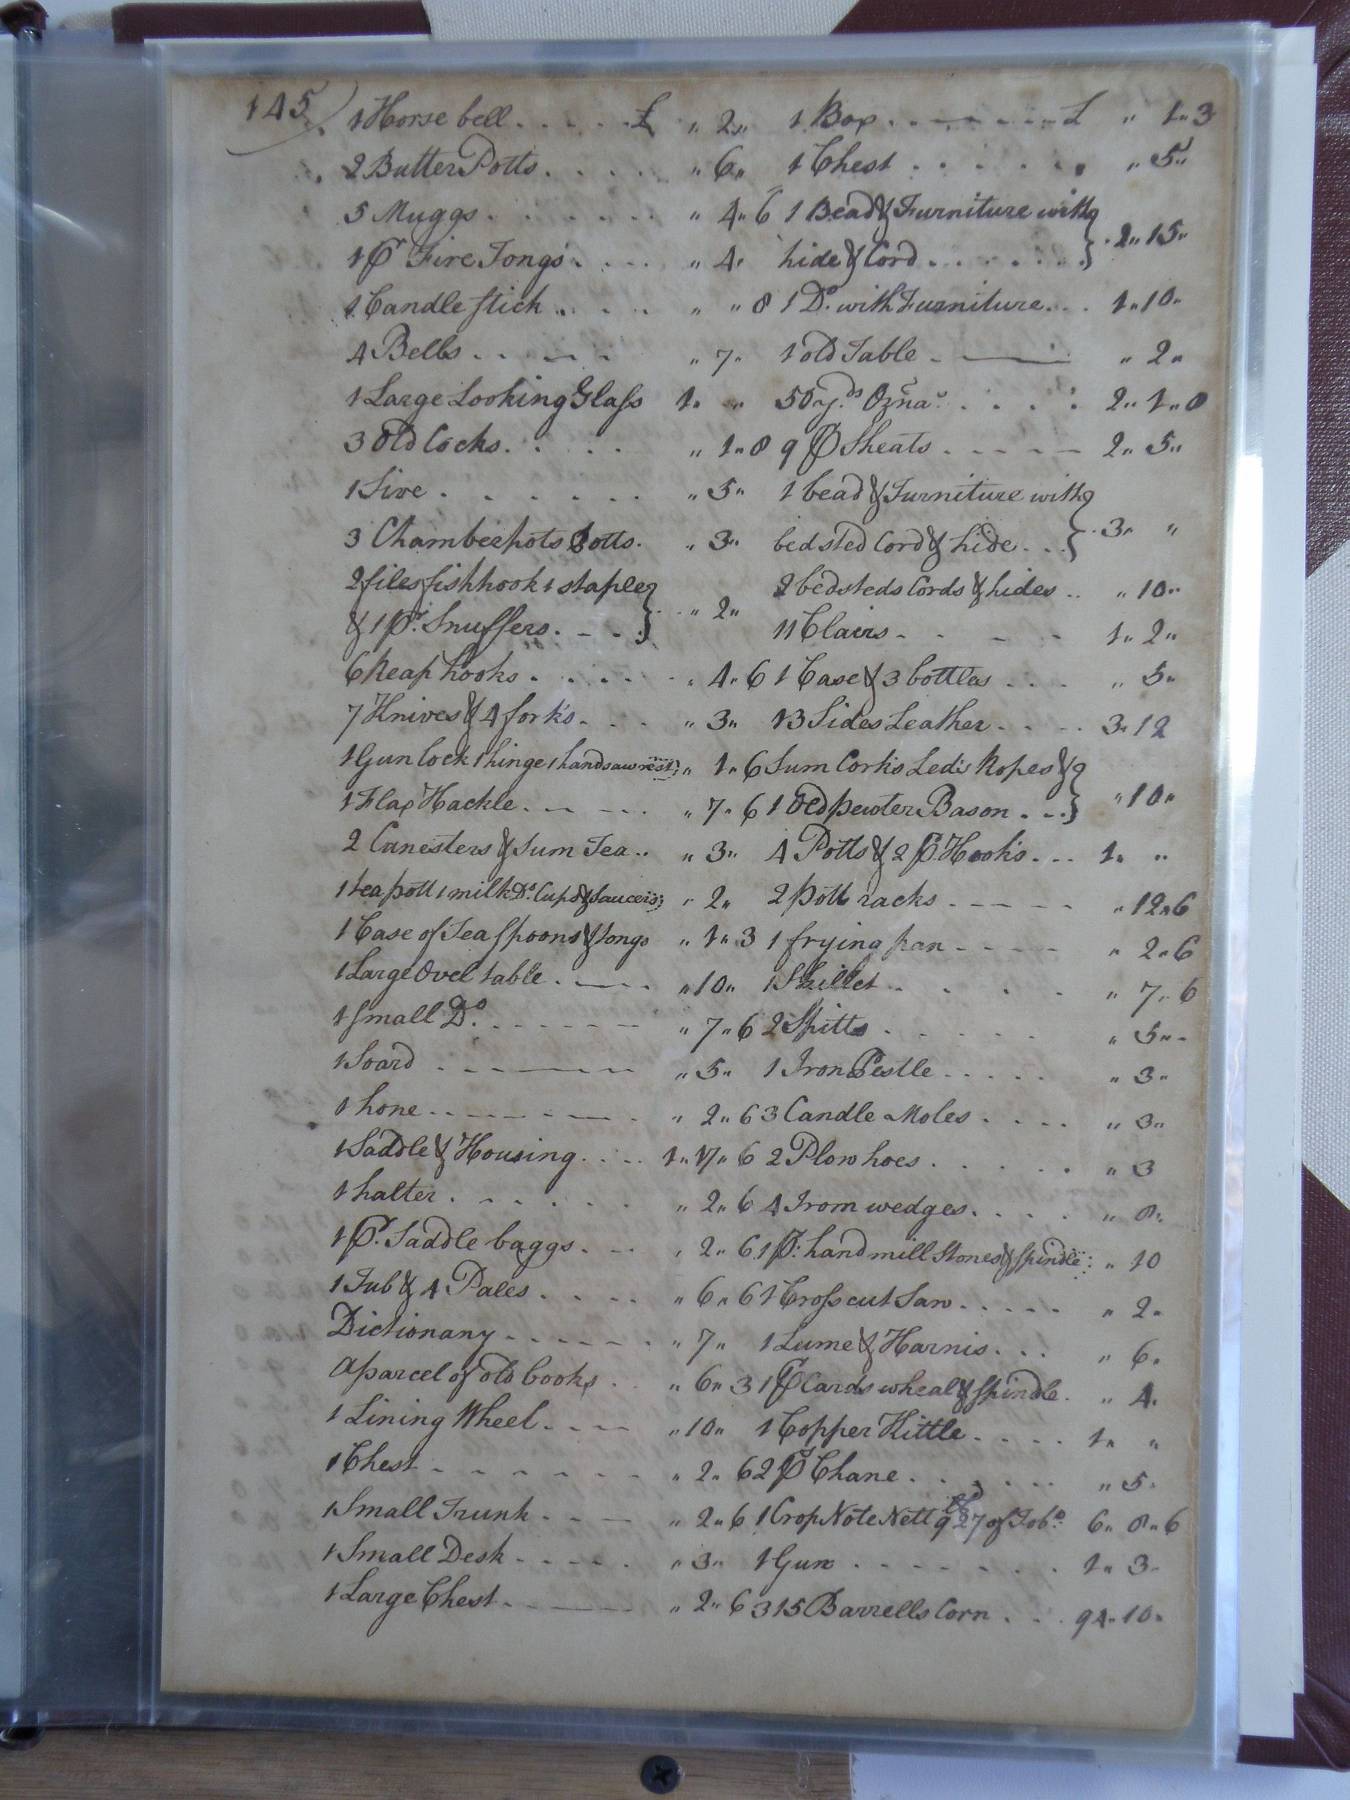 145
1 Horse bell . . . . . £ " 2 "
2 Butter Potts . . . . " 6 "
5 Muggs . . . . . . . " 4 " 6
1 Pr Fire Tongs . . . . " 4 "
1 Candle stick . . . . " " 8
4 Bells . . - - . " 7 "
1 Large Looking Glass 1 " "
3 Old Cocks . . . . " 1 " 8
1 Sive . . . . . . . " 5 "
3 Chamberpots Potts . " 3 "
2 files fishhook & staple }
& 1 Pr. Snuffers . - - . } " 2 "
6 Reap hooks . . . . . " 4 " 6
7 Knives & 4 forks . . . " 3 "
1 Gun lock 1 hinge 1 handsaw rest; " 1 " 6
1 Flax Hackle . - - . . " 7 " 6
2 Canesters & Sum Tea . . " 3 "
1 tea pott 1 milk Do. Cups & Saucers; " 2 "
1 Case of Tea spoons & tongs " 1 " 3
1 Large Ovel table . - - . " 10 "
1 small Do. . . . . . - - " 7 " 6
1 Soard . . - - - - - " 5 "
1 hone . . - - - - - . " 2 " 6
1 Saddle & Housing . . . . 1 " 17 " 6
1 halter . . . . . . . " 2 " 6
1 Pr. Saddle baggs . - - " 2 " 6
1 Tub & 4 Pales . . . . " 6 " 6
Dictionany . . - - - . . " 7 "
A parcel of old books . . " 6 " 3
1 Lining Wheel . . - - " 10 "
1 Chest - - - - - - - " 2 " 6
1 Small Trunk . - - - " 2 " 6
1 Small Desk - - - - . " 3 "
1 Large Chest . - - - " 2 " 6
1 Box . - - - - - £ " 1 " 3
1 Chest . . . . . . . " 5 "
1 Bead & Furniture with }
hide & Cord . . . . . . } 2 " 15 "
1 Do. with Furniture . . . 1 " 10 "
1 old Table - - - - " 2 "
50 yds. Ozna . . . . . 2 " 1 " 8
9 Pr Sheats . - - - - 2 " 5 "
1 bead & Furniture with }
bedsted Cord & hide . . . } 3 " "
2 bedsteds Cords & hides . . " 10 "
11 Clairs - - - - - 1 " 2 "
1 Case & 3 bottles . . . . " 5 "
13 Sides Leather . . . . 3 " 12
Sum Corks Leds Ropes & }
1 Old pewter Bason . . . } " 10 "
4 Potts & 2 Pr Hooks . . . 1 " "
2 pott racks . - - - - " 12 " 6
1 frying pan - - - - " 2 " 6
1 Skillet . . . . . " 7 " 6
2 Spitts . . . . . . . " 5 " -
1 Iron Pestle . . . . . " 3 "
3 Candle Moles . . . . " 3 "
2 Plow hoes . . . . . . " 3
4 Irom wedges . . . . . " 8 "
1 Pr. hand mill Stones & spindle : " 10
1 Cross cut Saw . . . . . " 2 "
1 Lume & Harnis . . . . " 6 "
1 Pr Cards wheal & spindle . " 4 "
1 Copper Kittle . . . . . 1 " "
2 Pr Chane . . . . . . " 5 "
1 Crop Note Nett 927 of Tobo. 6 " 8 " 6
1 Gun . . - - - . . 1 " 3 -
315 Barrells Corn . . . 94 " 10 "